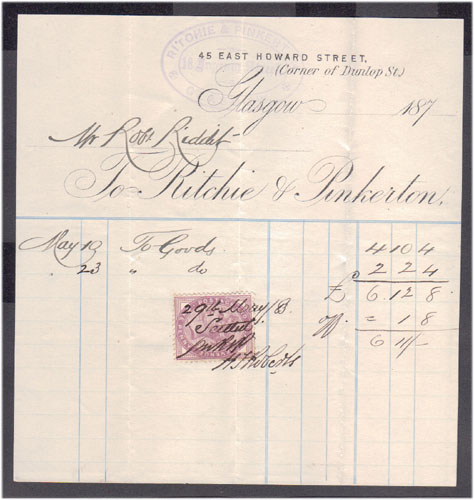 RITCHIE & PINKER
45 EAST HOWARD STREET,
(Corner of Dunlop St.)
Glasgow 187
Mr Robt Riddet
To Ritchie & Pinkerton.
May 13 To Goods 4 10 4
23 " do 2 2 4
£ 6 12 8
off = 1 8
6 11/-
29th May/8
Settled